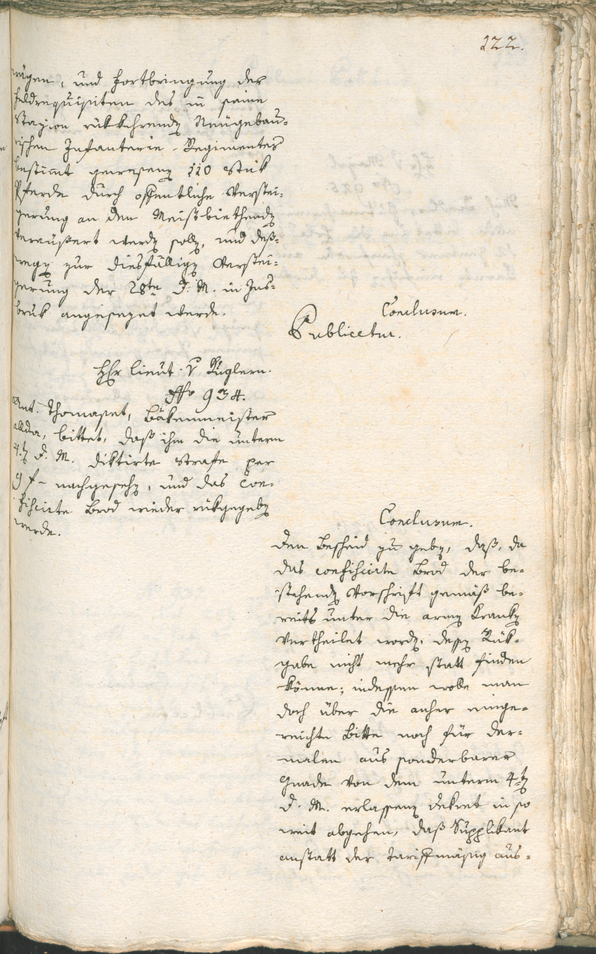 122.
und Fortbringung der
Feldrequisiten des in seine
Stazion rükkehrendn Neugebau-
ischen Infanterie-Regimentes
bestimt gewesene 110 Stük
Pferde durch öffentliche Verstei-
gerung an den Meistbiethendn
veräussert werdn solln, und deß-
wegn zur diesfälligen Verstei-
gerung der 28te d. M. in Ins-
bruk angesezet werde.
Conclusum.
Publicetur.
Hr Lieut. v
No 934.
Ant. Thomaset, Bäkenmeister
allda, bittet, daß ihm die unterm
4tn d. M. diktirte Strafe per
9 f – nachgesehn, und das con-
fiscirte Brod wieder rükgegebn
werde.
Conclusum.
Den Bescheid zu gebn, daß, da
das confiscirte Brod der be-
stehendn Vorschrift gemäß be-
reits unter die armen Krankn
vertheilet wordn, dessn Rük-
gabe nicht mehr statt finden
könne; indessen wolle man
doch über die anher einge-
reichte Bitte noch für der-
malen aus sonderbarer
Gnade von dem unterm 4tn
d. M. erlassenen Dekret in so
weit abgehen, daß Supplikant
anstatt der tariffmäsig aus-